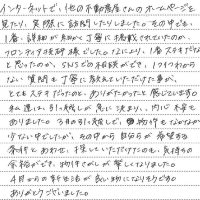 インターネットで、他の不動産屋さんのホームページを
見たり、実際に訪問したりしました。その中でも、
1番、詳細が細かく丁寧に掲載されていたのが、
フロンティア技研様でした。なにより、1番ステキだな
と思ったのが、SNSでの相談ができ、1つ1つわから
ない質問も丁寧に教えていただけた事が、
とてもステキだったのと、ありがたかったと感じています。
私達は、引っ越しが急に決まり、内心不安で
ありました。3月の引っ越しで、物件もなかなか
少ない中でしたが、その中から自分らが希望する
条件とあわせ、探していただけたのも、気持ちの
余裕ができ、物件さがしが楽しくなりました。
4月からの新生活が良い物になりそうです。
ありがとうございました。